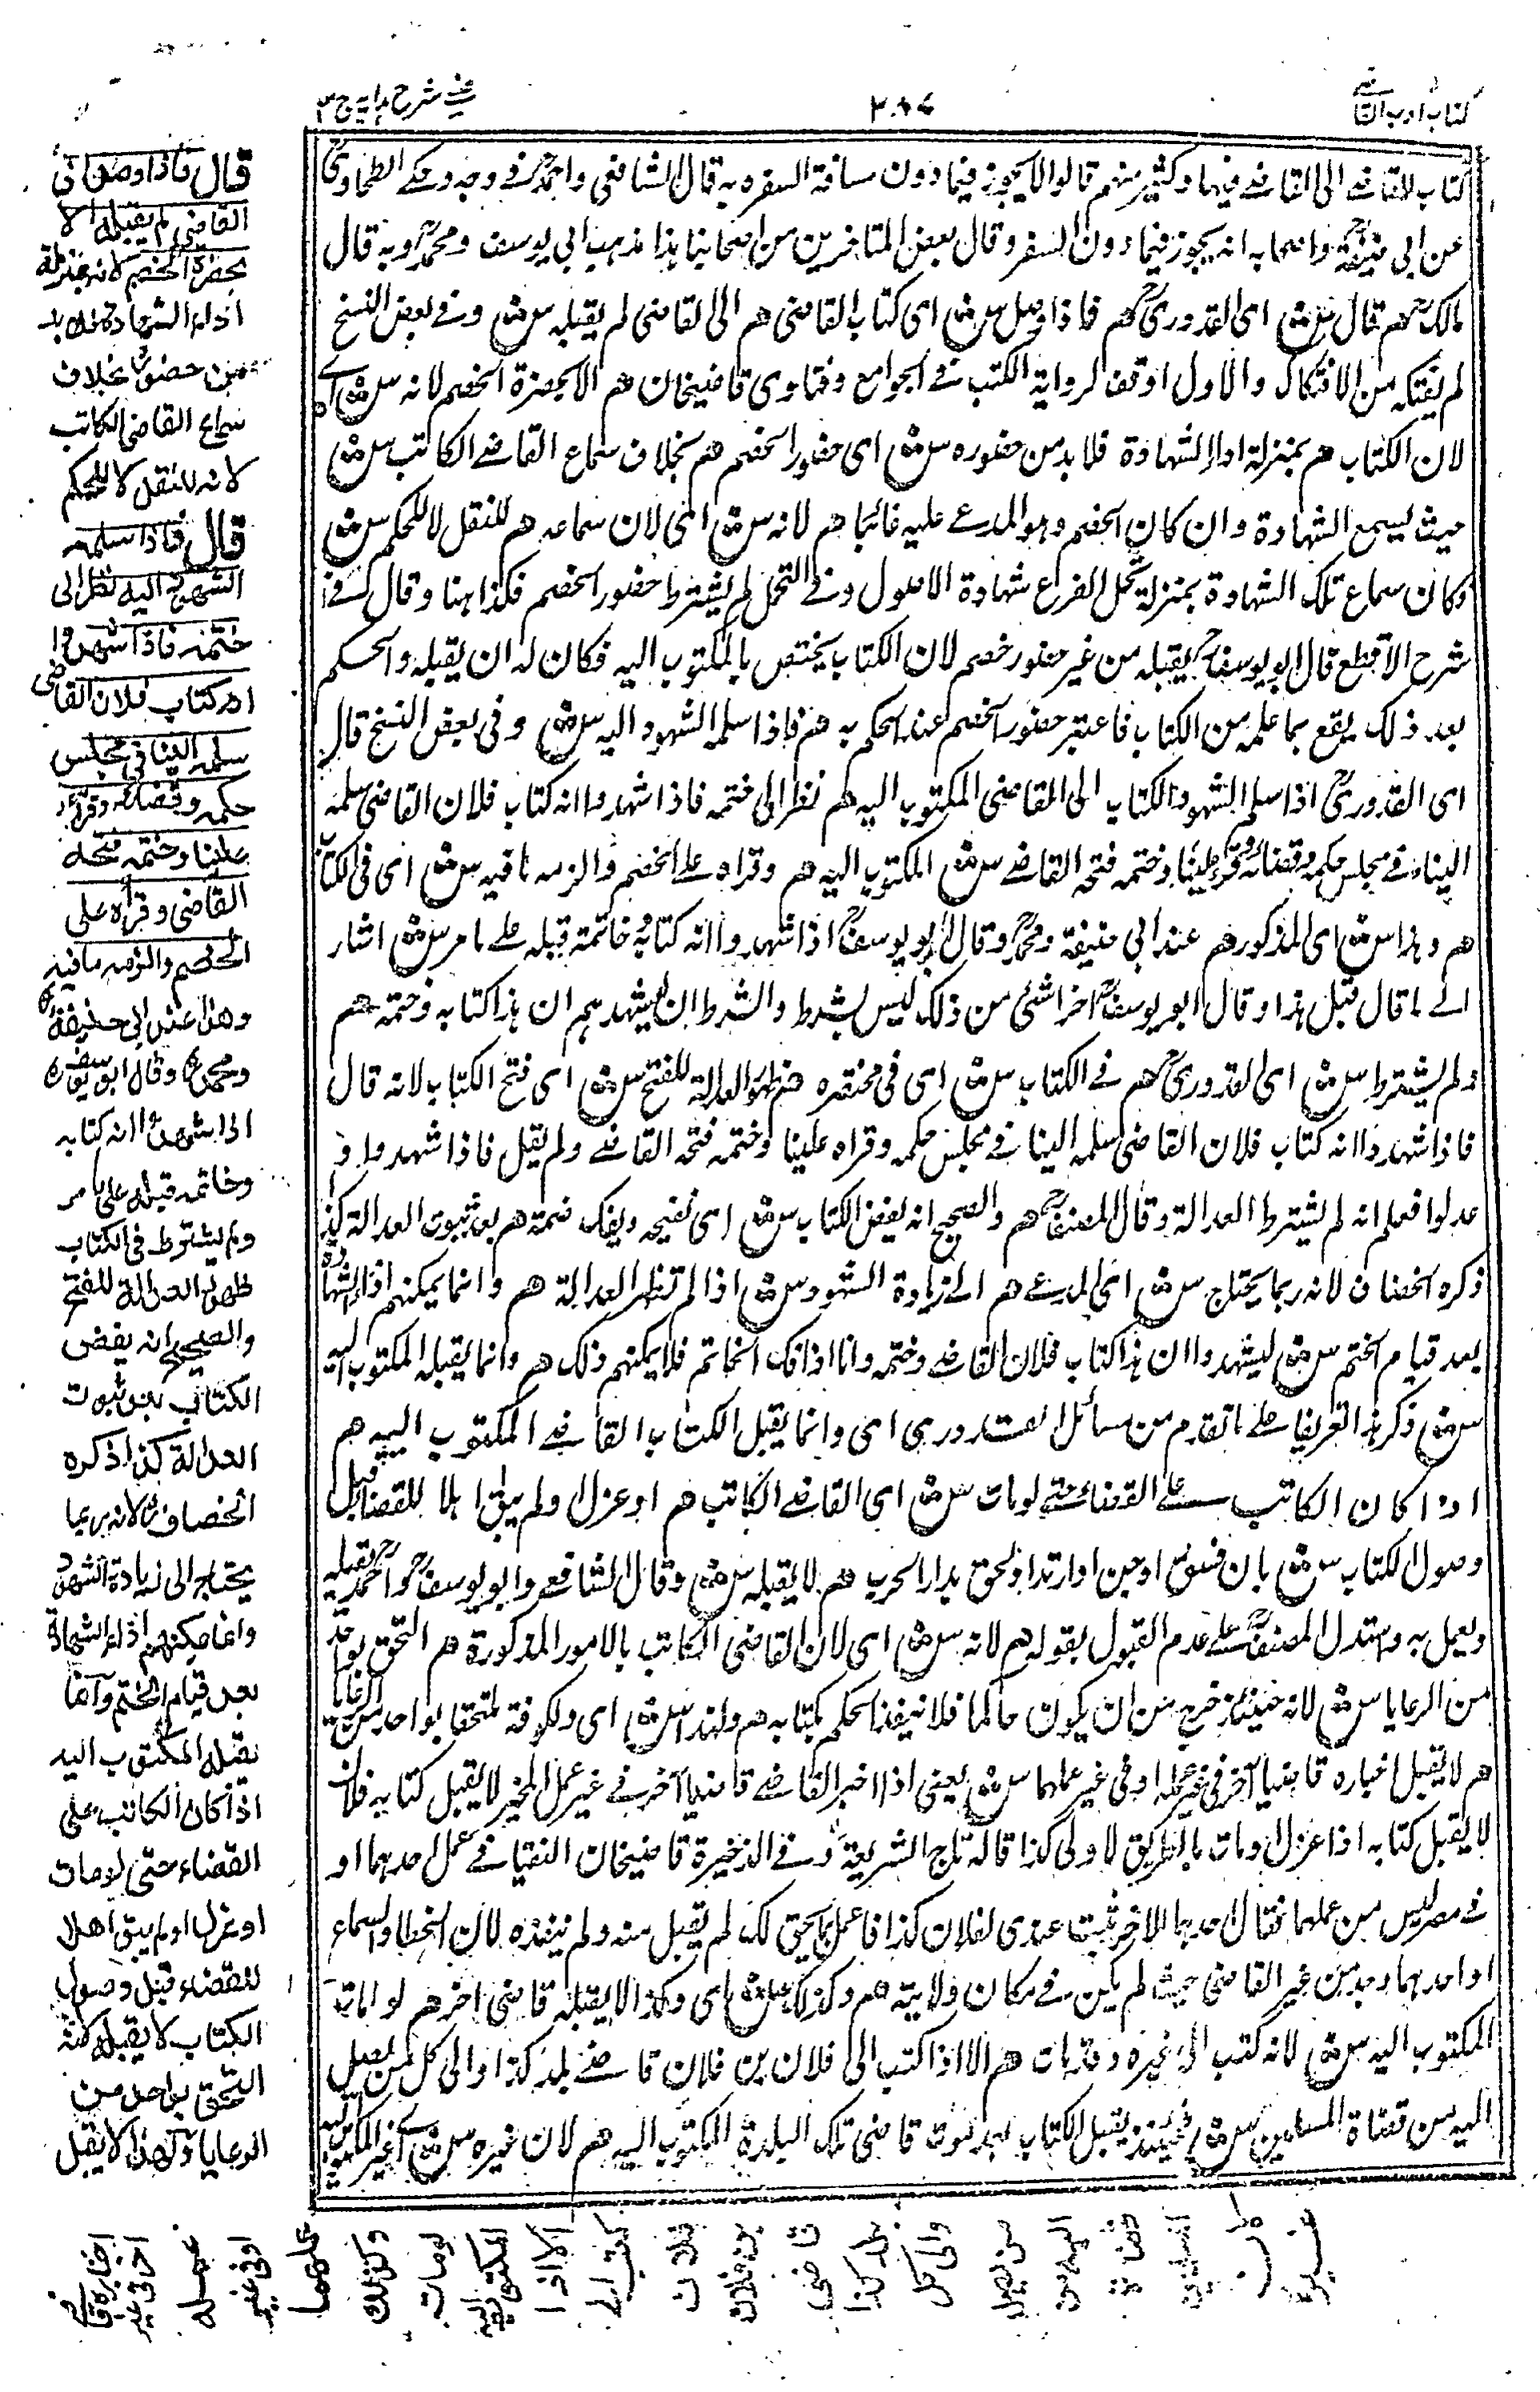 كتاب ادب القاضے
عينے شرح ہدایہ ج ٣
كتاب القاضے الى القاضے فيها وكثير منهم قالوا لا يجوز فيما دون مسافة السفر وبه قال الشافعي واحمدؒ في وجه وحكے الطحاویؒ
عن ابي حنيفةؒ واصحابه انه يجوز فيما دون السفر وقال بعض المتاخرين من اصحابنا هذا مذهب ابي يوسف ومحمدؒ وبه قال
مالكؒ هم قال س ش اى القدوریؒ هم فاذا وصل س ش اى كتاب القاضى هم الى القاضى لم يقبله س ش وفے بعض النسخ
لم يفتكه من الافتكاك والاول اوفق لرواية الكتب فے الجوامع وفتاوى قاضيخان هم الا بحضرة الخصم لانه س ش اے
لان الكتاب هم بمنزلة اداء الشهادة فلا بد من حضوره س ش اى حضور الخصم هم بخلاف سماع القاضے الكاتب س ش
حيث يسمع الشهادة وان كان الخصم وهو المدعے عليه غائبا هم لانه س ش اى لان سماعه هم للنقل لا للحكم س ش
وكان سماع تلك الشهادة بمنزلة تحمل الفرع شهادة الاصول وفے التحمل لم يشترط حضور الخصم فكذا هنا وقال فے
شرح الاقطع قال ابو يوسفؒ يقبله من غير حضور خصم لان الكتاب يختص بالمكتوب اليه فكان له ان يقبله والحكم
بعد ذلك يقع بما علمه من الكتاب فاعتبر حضور الخصم عند الحكم به هم فاذا سلمه الشهود اليه س ش وفى بعض النسخ قال
اى القدوریؒ اذا سلم الشهود الكتاب الى القاضى المكتوب اليه هم نظر الى ختمه فاذا شهدوا انه كتاب فلان القاضى سلمه
الينا فے مجلس حكمه وقضائه وقرأه علينا وختمه فتحه القاضے س ش المكتوب اليه هم وقراه علے الخصم والزمه ما فيه س ش اى فى الكتاب
هم وهذا س ش اى المذكور هم عند ابي حنيفة ومحمدؒ وقال ابو يوسفؒ اذا شهدوا انه كتابه وخاتمه قبله علے ما مر س ش اشار
الے ما قال قبل هذا وقال ابو يوسفؒ اخرا شئ من ذلك ليس بشرط والشرط ان يشهدهم ان هذا كتابه وختمه هم
ولم يشترط س ش اى القدوریؒ هم فے الكتاب س ش اى فى مختصره هم ظهور العدالة للفتح س ش اى فتح الكتاب لانه قال
فاذا شهدوا انه كتاب فلان القاضى سلمه الينا فے مجلس حكمه وقراه علينا وختمه فتحه القاضے ولم يقل فاذا شهدوا و
عدلوا فعلم انه لم يشترط العدالة وقال المصنفؒ هم والصحيح انه يفض الكتاب س ش اى يفتحه ويفك ختمه هم بعد ثبوت العدالة كذا
ذكره الخصاف لانه ربما يحتاج س ش اى المدعے هم الے زيادة الشهود س ش اذا لم تظهر العدالة هم وانما يمكنهم اداء الشهادة
بعد قيام الختم س ش ليشهدوا ان هذا كتاب فلان القاضے وختمه واما اذا فك الخاتم فلا يمكنهم ذلك هم وانما يقبله المكتوب اليه
س ش ذكر هذا تفريعا علے ما تقدم من مسائل القدورى اى وانما يقبل الكتاب القاضے المكتوب اليه هم
اذا كان الكاتب علے القضاء حتے لو مات س ش اى القاضے الكاتب هم او عزل او لم يبق اهلا للقضاء قبل
وصول الكتاب س ش بان فسق او جن او ارتد او لحق بدار الحرب هم لا يقبله س ش وقال الشافعے وابو يوسفؒ واحمدؒ يقبله
ويعمل به واستدل المصنفؒ علے عدم القبول بقوله هم لانه س ش اى لان القاضى الكاتب بالامور المذكورة هم التحق بواحد
من الرعايا س ش لانه حينئذ خرج من ان يكون حاكما فلا ينفذ الحكم بكتابه هم ولهذا س ش اى ولكونه ملتحقا بواحد من الرعايا
هم لا يقبل اخباره قاضيا آخر فى غير عمله او فى غير عملهما س ش يعنى اذا اخبر القاضے قاضيا آخر فے غير عمل المخبر لا يقبل كتابه فلان
لا يقبل كتابه اذا عزل او مات بالطريق الاولى كذا قاله تاج الشريعةؒ وفے الذخيرة قاضيخان التقيا فے عمل احدهما او
فے مصر ليس من عملهما فقال احدهما للاخر ثبت عندى لفلان كذا فاعمل بما يحق لك لم يقبل منه ولم ينفذه لان الخطاب والسماع
او احدهما وجد من غير القاضى حيث لم يكن فے مكان ولايته هم وكذلك س ش اى وكذا لا يقبله قاضى اخر هم لو مات
المكتوب اليه س ش لانه كتب الى غيره وقد مات هم الا اذا كتب الى فلان بن فلان قاضے بلد كذا والى كل من يصل
اليه من قضاة المسلمين س ش فحينئذ يقبل الكتاب بعد موت قاضى تلك البلدة المكتوب اليه هم لان غيره س ش اے غير المكتوب اليه
قال فاذا وصل الى
القاضى لم يقبله الا
بحضرة الخصم لانه بمنزلة
اداء الشهادة فلا بد
من حضوره بخلاف
سماع القاضى الكاتب
لانه للنقل لا للحكم
قال فاذا سلمه
الشهود اليه نظر الى
ختمه فاذا شهدوا
انه كتاب فلان القاضى
سلمه الينا فى مجلس
حكمه وقضائه وقرأه
علينا وختمه فتحه
القاضى وقرأه على
الخصم والزمه ما فيه
وهذا عند ابى حنيفةؒ
ومحمدؒ وقال ابو يوسفؒ
اذا شهدوا انه كتابه
وخاتمه قبله على ما مر
ولم يشترط فى الكتاب
ظهور العدالة للفتح
والصحيح انه يفض
الكتاب بعد ثبوت
العدالة كذا ذكره
الخصافؒ لانه ربما
يحتاج الى زيادة الشهود
وانما يمكنهم اداء الشهادة
بعد قيام الختم وانما
يقبله المكتوب اليه
اذا كان الكاتب على
القضاء حتى لو مات
او عزل او لم يبق اهلا
للقضاء قبل وصول
الكتاب لا يقبله لانه
التحق بواحد من
الرعايا ولهذا لا يقبل
اخباره قاضيا
آخر فى غير
عمله
او فى غير
عملهما
وكذلك
لو مات
المكتوب اليه
الا اذا
كتب الى
فلان
بن فلان
قاضى
بلد كذا
والى كل
من يصل
اليه من
قضاة
المسلمين
لان
غيره